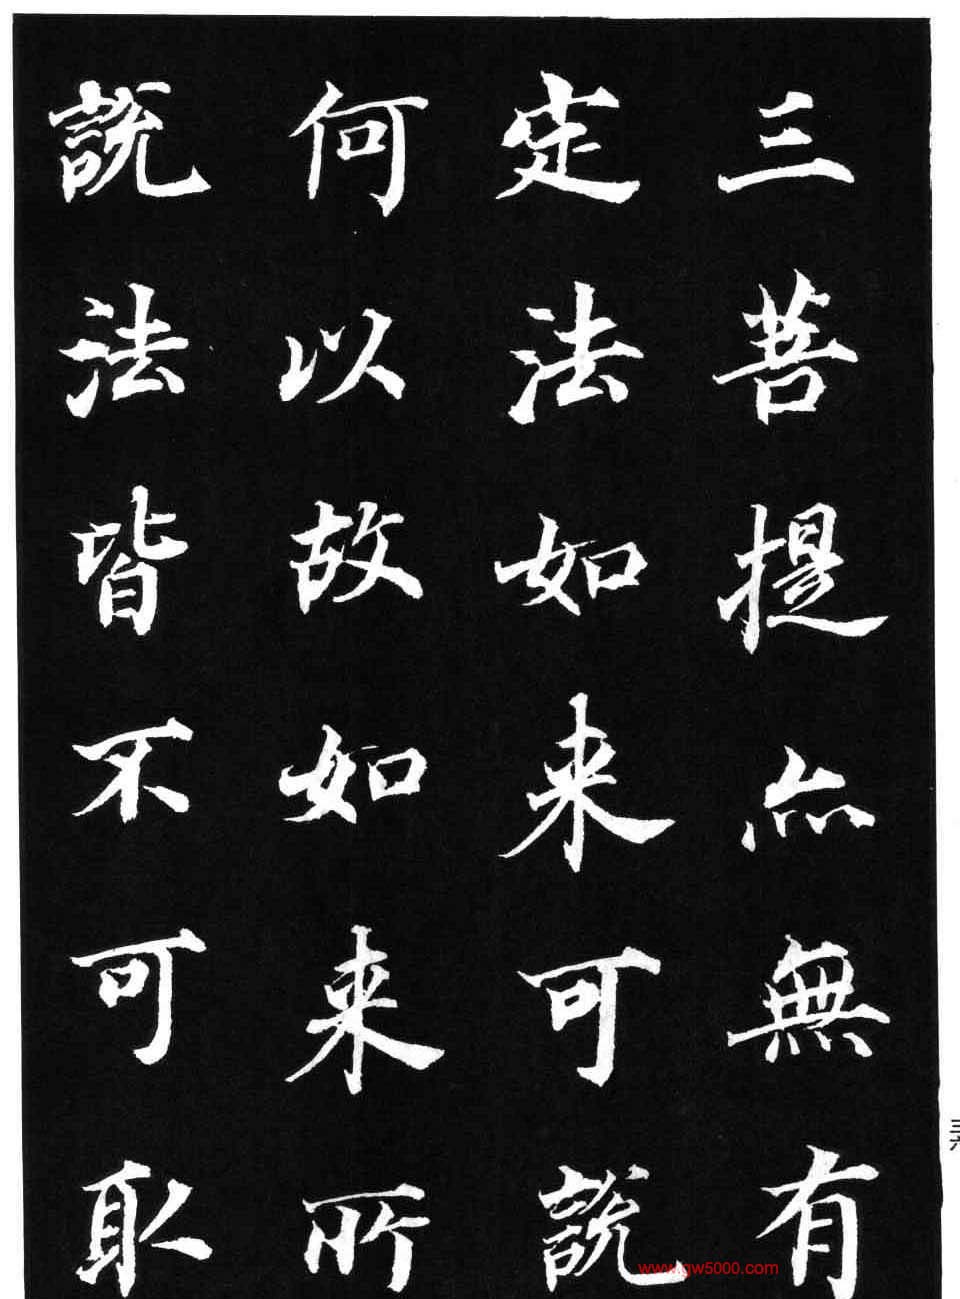 三菩提亦無有
定法如来可説
何以故如来所
説法皆不可取
www.gw5000.com